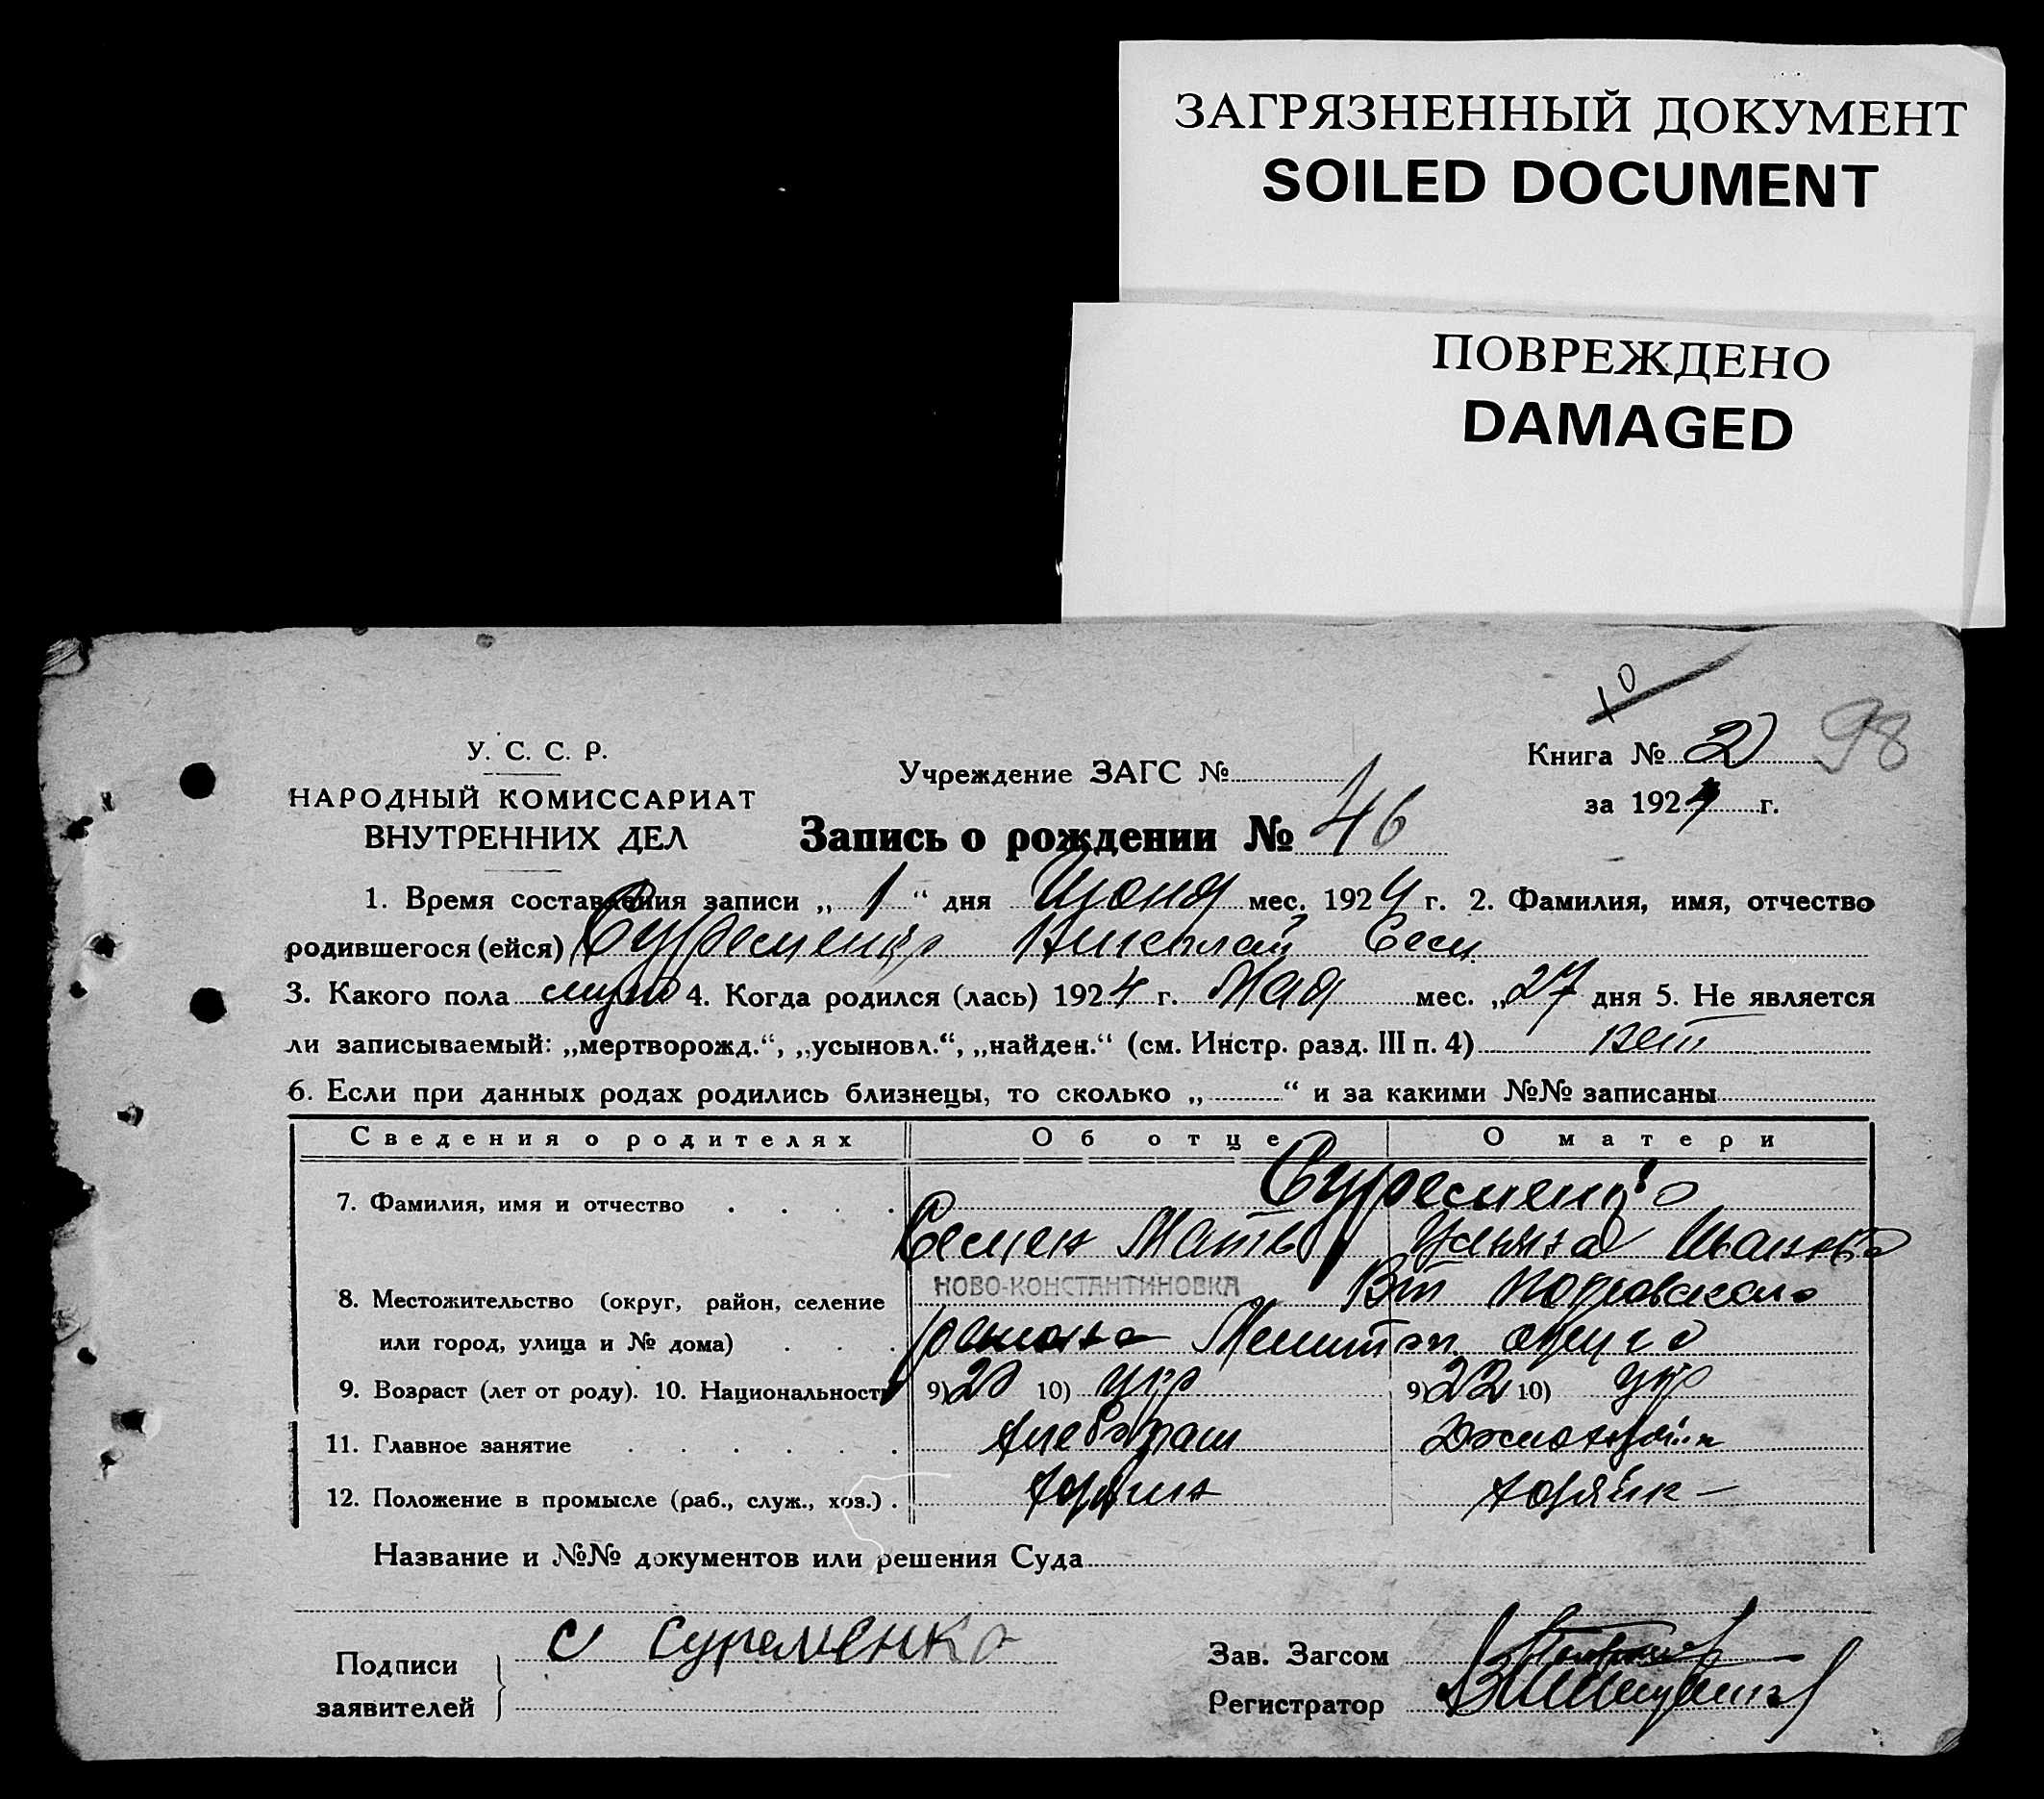 ЗАГРЯЗНЕННЫЙ ДОКУМЕНТ
SOILED DOCUMENT
ПОВРЕЖДЕНО
DAMAGED
10
98
У. С. С. Р.
НАРОДНЫЙ КОМИССАРИАТ
ВНУТРЕННИХ ДЕЛ
Учреждение ЗАГС №
Книга № 2
за 1924 г.
Запись о рождении № 46
1. Время составления записи „ 1 “ дня Июня мес. 1924 г. 2. Фамилия, имя, отчество
родившегося (ейся) Суременко Николай Сем
3. Какого пола муж 4. Когда родился (лась) 1924 г. Мая мес. „27 дня 5. Не является
ли записываемый: „мертворожд.“, „усыновл.“, „найден.“ (см. Инстр. разд. III п. 4) нет
6. Если при данных родах родились близнецы, то сколько „ “ и за какими №№ записаны
Сведения о родителях Об отце О матери
7. Фамилия, имя и отчество Суременко
Семен Матв Ульяна Иванова
8. Местожительство (округ, район, селение НОВО-КОНСТАНТИНОВКА Покровского
или город, улица и № дома) района Мелитоп округа
9. Возраст (лет от роду). 10. Национальность 9) 20 10) укр 9) 22 10) укр
11. Главное занятие хлебопаш Домохозяйк
12. Положение в промысле (раб., служ., хоз.) . хозяин хозяйк
Название и №№ документов или решения Суда
Подписи
заявителей
С Суременко
Зав. Загсом
Регистратор